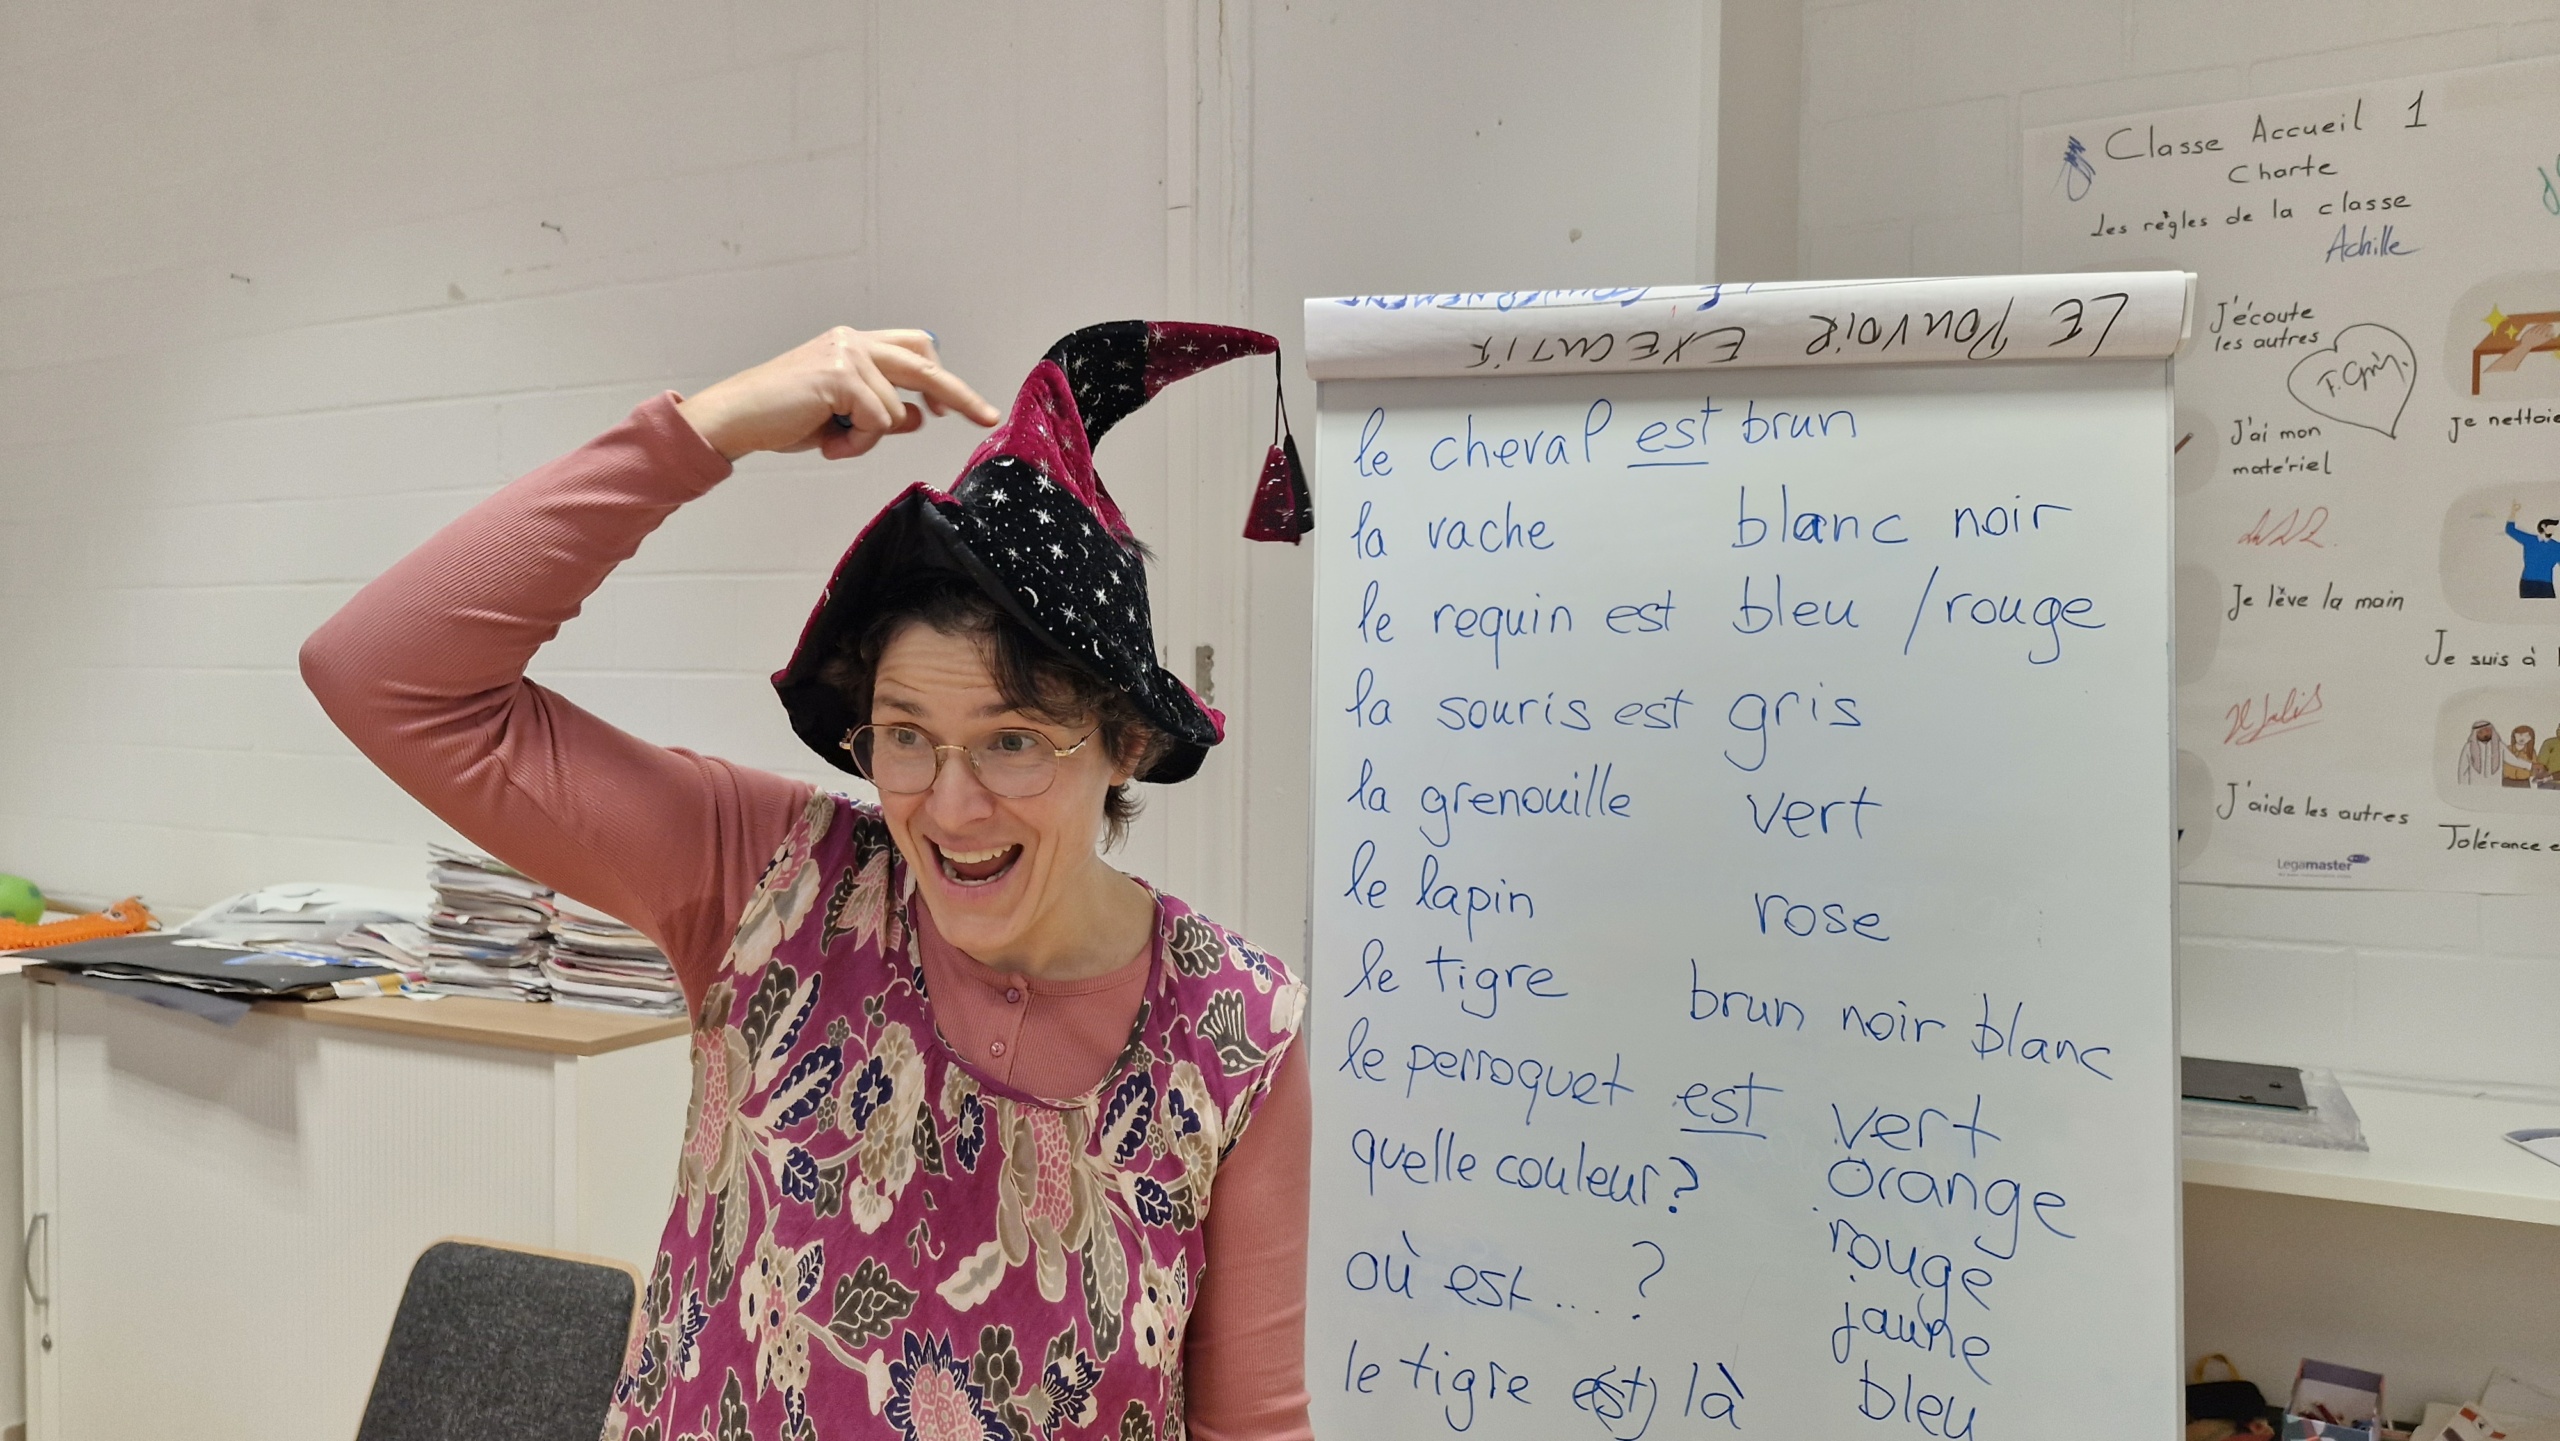 LE POUVOIR EXECUTIF
le cheval est brun
la vache blanc noir
le requin est bleu / rouge
la souris est gris
la grenouille vert
le lapin rose
le tigre brun noir blanc
le perroquet est vert
quelle couleur? orange
rouge
où est .... ? jaune
le tigre est là bleu
Classe Accueil 1
Charte
Les règles de la classe
Achille
J'écoute
les autres
J'ai mon
matériel
Je nettoie
Je lève la main
Je suis à
J'aide les autres
Tolérance
Legamaster